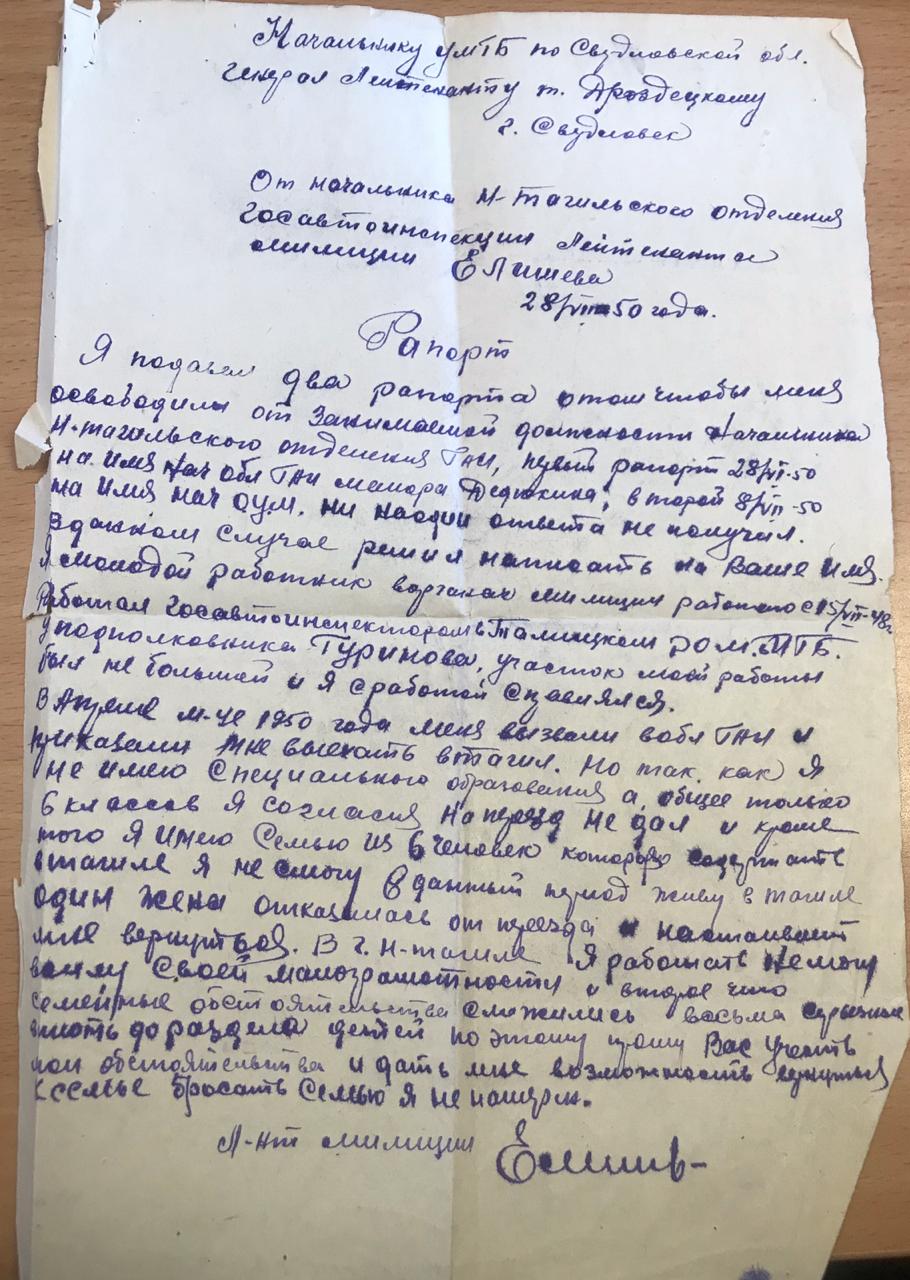 Начальнику УМГБ по Свердловской обл.
Генерал Лейтенанту т. Дроздецкому
г. Свердловск
От начальника Н-Тагильского отделения
Госавтоинспекции Лейтенанта
милиции Елишева
28/VII-50 года.
Рапорт
Я подавал два рапорта отом чтобы меня
освободили от Занимаемой должности Начальника
Н-тагильского отделения ГАИ, первый рапорт 28/VI-50
на имя Нач обл ГАИ майора Дедюкина, второй 8/VII-50
на имя нач О.У.М. ни наодин ответа не получил.
Вданном Случае решил написать на Ваше имя.
Я молодой работник ворганах милиции работаю с 15/VII-48г
Работал Госавтоинспектором в Талицком Р.О.М.МГБ.
у подполковника Туринова, участок моей работы
был не большей и я сработой Справлялся.
В Апреле м-це 1950 года меня вызвали вобл ГАИ и
приказали мне выехать втагил. Но так, как Я
не имею Специального образования а, общее только
6 классов Я согласия на переезд не дал и кроме
того Я имею Семью из 6 человек которую содержать
втагиле я не смогу Вданный период живу в тагиле
один жена отказалась от переезда и настаивает
мне вернуться. В г. Н-тагиле Я работать не могу
ввиду Своей малограмотности и второе что
семейные обстоятельства Сложились весьма серьезные
вплоть до раздела детей поэтому прошу Вас Учесть
мои обстоятельства и дать мне возможность вернуться
к семье бросать Семью я не намерен.
Л-нт милиции Елишев